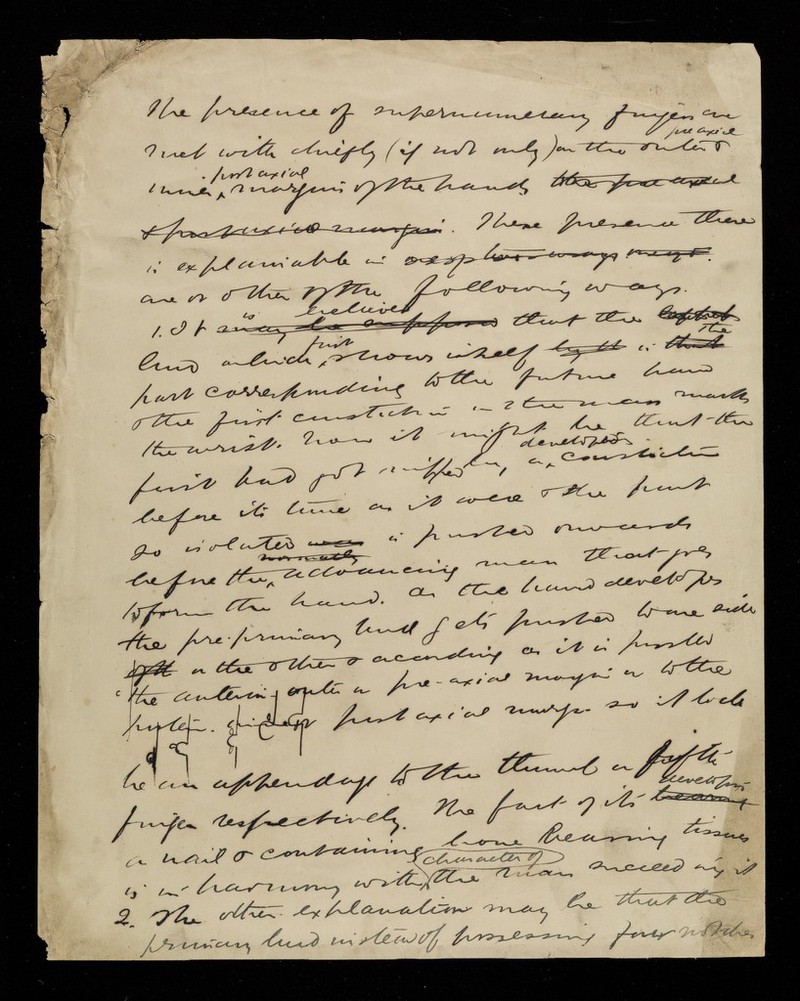 The presence of supernumerary fingers are
met with chiefly (if not only) on the outer &
pre axial
post axial
inner margins of the hands the pre axial
& post axial margin. These presence there
is explainable in
one or other of the following ways.
believed
1. It is may be supposed that the
bud which first shows itself is the
part corresponding to the future hand
& the first constriction in the mass marks
the wrist. Now it might be that the
developed
first bud got nipped in, a constriction
before its time as it were & the part
so isolated was is pushed onwards
normally
before the advancing mass that goes
to form the hand. As the hand develops
the pre-primary bud gets pushed to one side
of the or the other & according as it is pushed to
the anterior, outer or pre-axial margin or to the
post axial margin so it
be an appendage to the thumb or fifth
developing
finger respectively. The fact of its bearing
a nail & containing bone bearing tissues
character of
is in harmony with the mass succeeding it
2. The other explanation may be that the
primary bud instead of possessing four notches